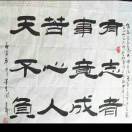 有志者
事竟成
苦心人
天不負